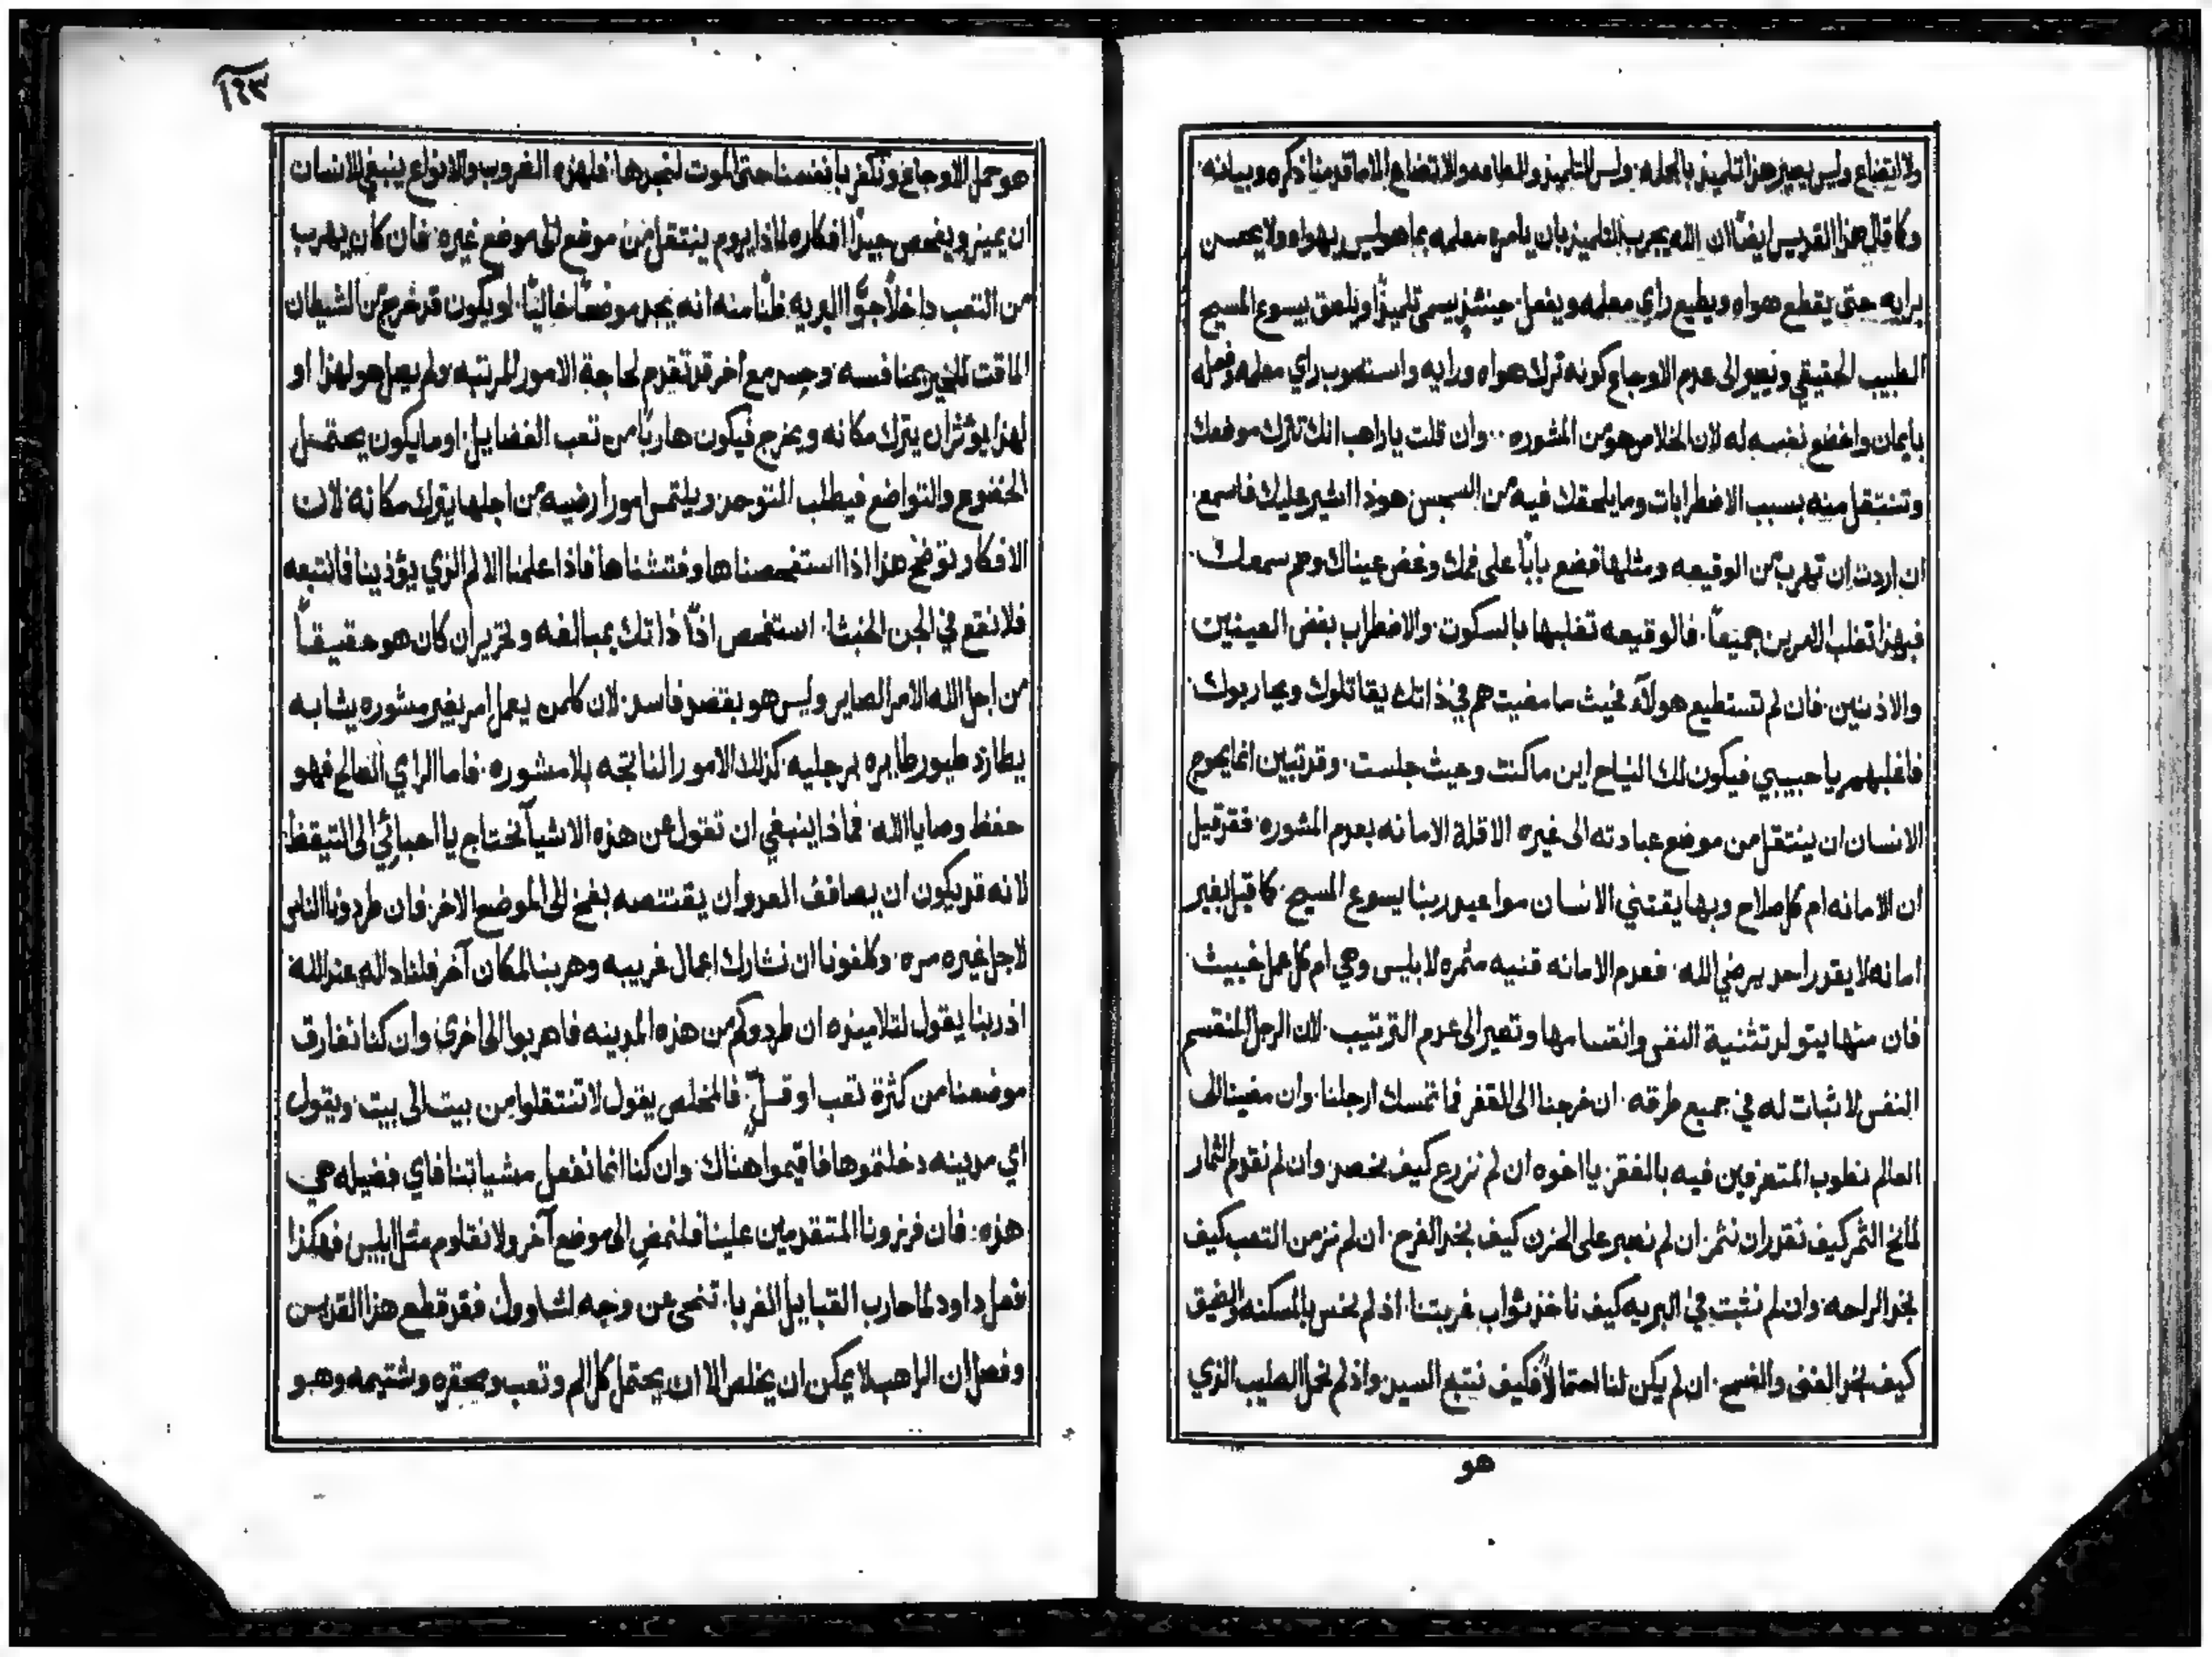 ولا اتضاع وليس يصير هذا تلميذ بالجمله. وليس للتلميذ والطاعه والاتضاع الا ما قدمنا ذكره وبيانه.
وكما قال هذا القديس ايضًا ان الله يجرب التلميذ بان يامره معلمه بما هو ليس يهواه ولا يحسن
برايه حتى يقطع هواه ويطيع راي معلمه ويفعل. حينئذ يسمى تلميذًا ويلصق بيسوع المسيح
الطبيب الحقيقي ويصير الى عدم الاوجاع كونه ترك هواه ورايه واستصوب راي معلمه وقبله
بايمان واخضع نفسه له لان الخلاص هو من المشوره. وان قلت يا راهب انك تترك موضعك
وتنتقل منه بسبب الاضطرابات وما يلحقك فيه من السجس هوذا اشير عليك فاسمع.
ان اردت ان تهرب من الوقيعه ومثلها فضع بابًا على فمك وغض عيناك وصم سمعك
فبهذا تغلب المرين جميعًا. فالوقيعه تغلبها بالسكوت. والاضطراب بغض العينين
والاذنين. فان لم تستطيع هولآء فحيث ما مضيت هم في ذاتك يقاتلوك ويحاربوك
فاغلبهم يا حبيبي فيكون لك النياح اين ما كنت وحيث جلست. وقد تبين انما يحوج
الانسان ان ينتقل من موضع عبادته الى غيره الا قلة الامانه بعدم المشوره. فقد قيل
ان الامانه ام كل صلاح وبها يقتني الانسان مواعيد ربنا يسوع المسيح. كما قيل بغير
امانه لا يقدر احد يرضي الله. فعدم الامانه قنيه مثمره لابليس وهي ام كل عمل خبيث.
فان منها يتولد تثنية النفس وانقسامها وتصير الى عدم الترتيب. لان الرجل المنقسم
النفس لا ثبات له في جميع طرقه. ان خرجنا الى القفر فما تمسك ارجلنا. وان مضينا الى
العالم نطوب المتصرفين فيه بالفقر. يا اخوه ان لم نزرع كيف نحصد. وان لم نقدم الثمار
لمانح الثمر كيف نقدر ان نثمر. ان لم نصبر على الحزن كيف نجد الفرح. ان لم نزمن التعب كيف
نجد الراحه. وان لم نثبت في البريه كيف ناخذ ثواب غربتنا. اذ لم نحس بالمسكنه والضيق
كيف نجد الغنى والفسح. ان لم يكن لنا احتمالاً فكيف نتبع السيد. واذ لم نحمل الصليب الذي
هو
١٢٣
هو حمل الاوجاع ونكفر بانفسنا حتى الموت لنجدها. فلهذه الضروب والانواع ينبغي للانسان
ان يميز ويفحص جيدًا افكاره لماذا يروم ينتقل من موضع الى موضع غيره. فان كان يهرب
من التعب داخلاً جوّا البريه ظنًا منه انه يجد موضعًا خاليًا. او يكون قد خرج من الشيطان
الماقت للخير بمنافسه. وحسد مع آخر قد تقدم لحاجة الامور المرتبه ولم يصل هو لهذا او
لهذا يوثر ان يترك مكانه ويخرج فيكون هاربًا من تعب الفضايل. او ما يكون يحتمل
الخضوع والتواضع فيطلب التوحد ويلتمس امورا رضيه من اجلها يترك مكانه. لان
الافكار توضح هذا اذا استفحصناها وفتشناها فاذا علمنا الالم الذي يؤذينا فلنتبعه
فلا نقع في الجن الخبثا. استفحص اذًا ذاتك بمبالغه وتحرير ان كان هو حقيقًا
من اجل الله الامر الصاير وليس هو بقصد فاسد. لان كلمن يعمل امر بغير مشوره يشابه
يطارد طيور طايره برجليه. كذلك الامور الناتجه بلا مشوره. فاما الراي الصالح فهو
حفظ وصايا الله. فماذا ينبغي ان تقول عن هذه الاشيآ نحتاج يا احبائي الى التيقظ
لانه قد يكون ان يصافف العدو ان يقتنصه بفخ الى الموضع الاخر. فان طردونا الناس
لاجل غيره مره. وكلفونا ان نشارك اعمال غريبه وهربنا لمكان آخر فلنا داله عند الله
اذ ربنا يقول لتلاميذه ان طردوكم من هذه المدينه فاهربوا الى اخرى. وان كنا نفارق
موضعنا من كثرة تعب او قسلٍ. فالمخلص يقول لا تنتقلوا من بيت الى بيت. ويقول
اي مدينه دخلتموها فاقيموا هناك. وان كنا انما نفعل مشياتنا فاي فضيله هي
هذه. فان فرزونا المتقدمين علينا فلنمضِ الى موضع آخر ولا نقاوم مثل ابليس فهكذا
فعل داود لما حارب القبايل الغربا. تنحى عن وجه لشاوول فقد قطع هذا القديس
وفصل ان الراهب لا يمكن ان يخلص الا ان يحتمل كل الم وتعب ومحقره وشتيمه وهو